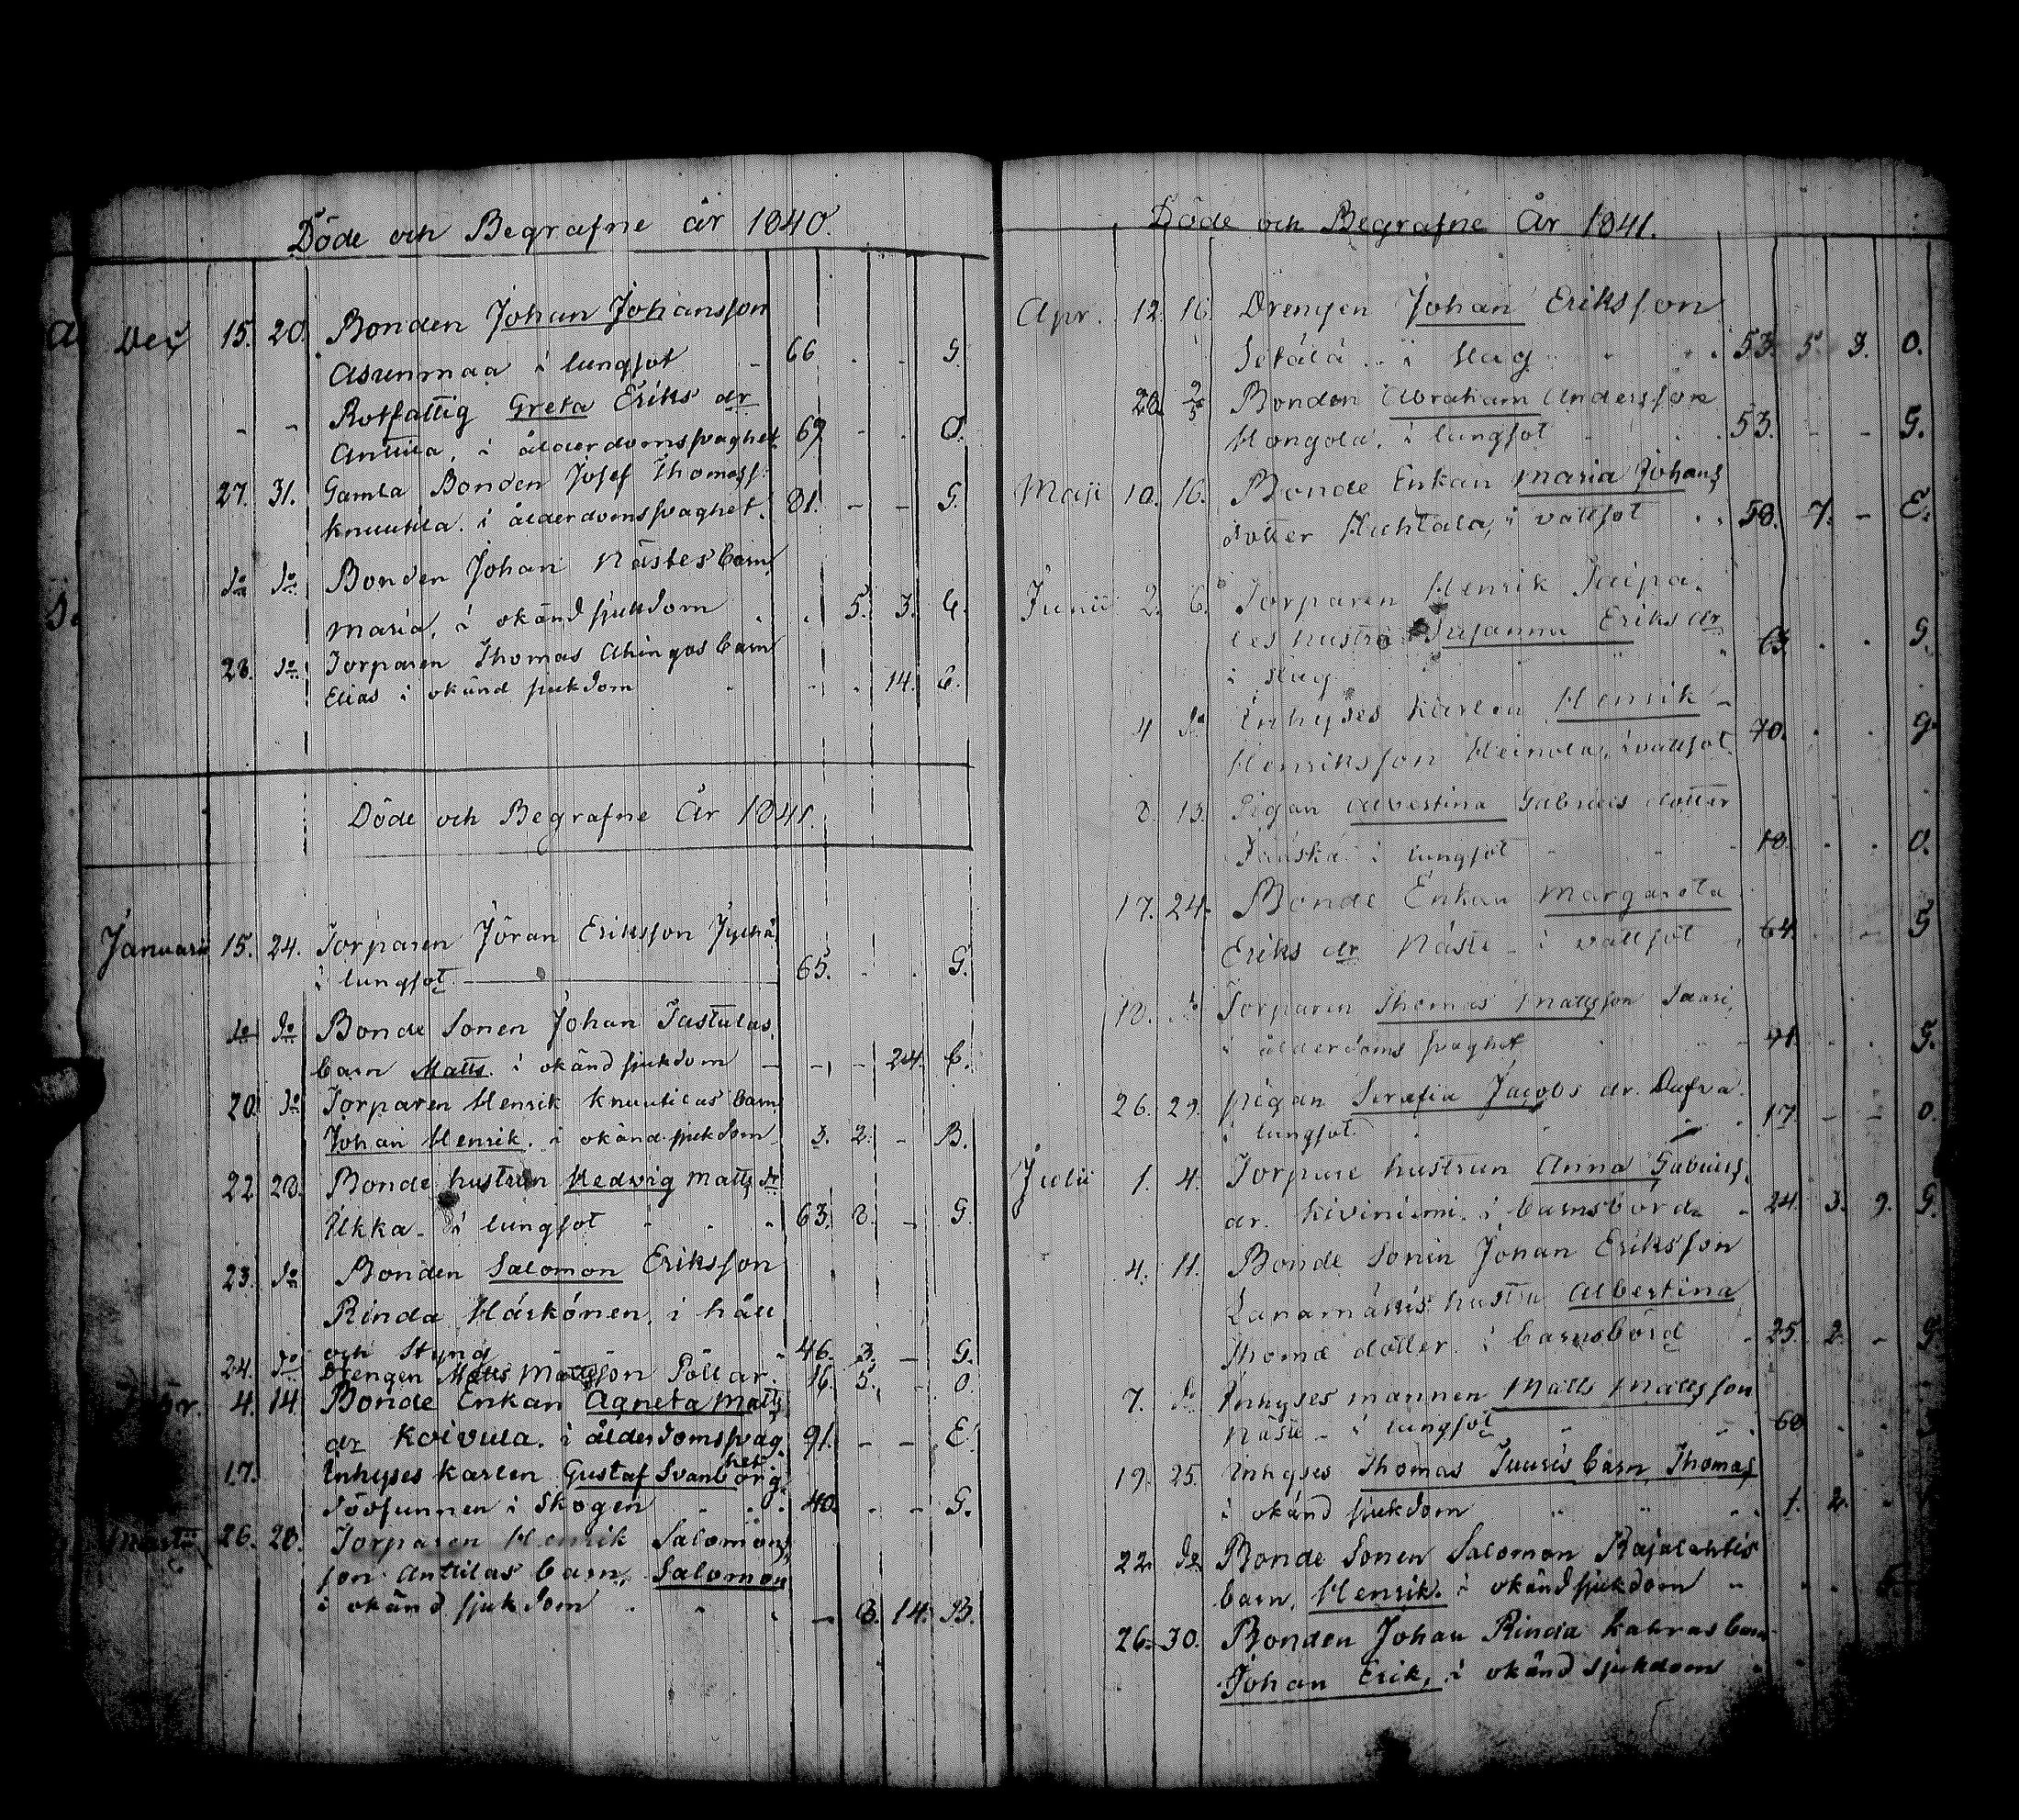 Döde och Begrafne år 1840.
Dec 15. 20. Bonden Johan Johansson
Asunmaa i lungsot - 66 . - G.
- - Rotfattig Greta Eriks dr
Anttila, i ålderdomsvaghet 69 - . O.
27. 31. Gamla Bonden Josef Thomass:
Knuutila. i ålderdomsvaghet. 81. - - G.
do do Bonden Johan Nästes barn
Maria, i okänd sjukdom . . 5. 3. B.
28. do Torparen Thomas Ahingas barn
Elias i okänd sjukdom . - . 14. B.
Döde och Begrafne År 1841.
Januarii 15. 24. Torparen Jöran Eriksson
i lungsot. 65. . . G.
do do Bonde Sonen Johan Tastulas
barn Matts. i okänd sjukdom - - - 24. B.
20. do Torparen Henrik Knuutilas barn
Johan Henrik. i okänd sjukdom 3. 2. - B.
22. 28. Bonde hustrun Hedvig Matts dr
Ukka - i lungsot - . . 63. 8. - G.
23. do Bonden Salomon Eriksson
Rinda Härkönen, i håll
och Styng 46. 3. - G.
24. do Drengen Matts Mattsson Pöllar. 16. 5. - O.
4. 14. Bonde Enkan Agneta Matts
dr Koivula. i ålderdomsvag 91. - - E.
het
17. Inhyses karlen Gustaf Svanberg
dödfunnen i Skogen - . . 40. - - G.
Martii 26. 28. Torparen Henrik Salomons
son Anttilas barn, Salomon
i okänd sjukdom . - . - 8. 14. B.
Döde och Begrafne År 1841.
Apr. 12. 16. Drengen Johan Eriksson
Setälä .. i slag . . . 53. 5. 3. O.
28. 2/5 Bonden Abraham Andersson
Hongola. i lungsot - . . 53. - - G.
Maji 10. 16. Bonde Enkan Maria Johans
dotter Huhtala, i vattsot . . 58. 7. - E.
Junii 2. 6. Torparen Henrik Jaipa-
les hustru Susanna Eriks dr
i slag . 63. . . G.
4 do Inhyses Karlen Henrik -
Henriksson Heinola, i vattsot. 70. . . G.
8. 13. Pigan Albertina Gabriels dotter
i lungsot - - - 18. . . O.
17. 24. Bonde Enkan Margareta
Eriks dr Näste - i vattsot . 64. . - G
18. do Torparen Thomas Mattsson Saari,
i ålderdoms svaghet - - 71. . . G.
26. 29. Pigan Serafia Jacobs dr. Dufva.
i lungsot. . . . 17. - - O.
Julii 1. 4. Torpare hustrun Anna Gabriels
dr. Kiviniemi. i barnsbörd - 24. 3. 9. G.
4. 11. Bonde Sonen Johan Eriksson
Lanamäkis hustru Albertina
Thomæ dotter. i barnsbörd - 25. 2. - G.
7. do Inhyses mannen Matts Mattsson
Näste - i lungsot - . . 60 . .
19. 25. Inhyses Thomas Juuris barn Thomas
i okänd sjukdom " " . 1. 2. .
22. do Bonde Sonen Salomon Rajalahtis
barn, Henrik. i okänd sjukdom - . .
26. 30. Bonden Johan Rinda Kahras barn
Johan Erik, i okänd sjukdom . .